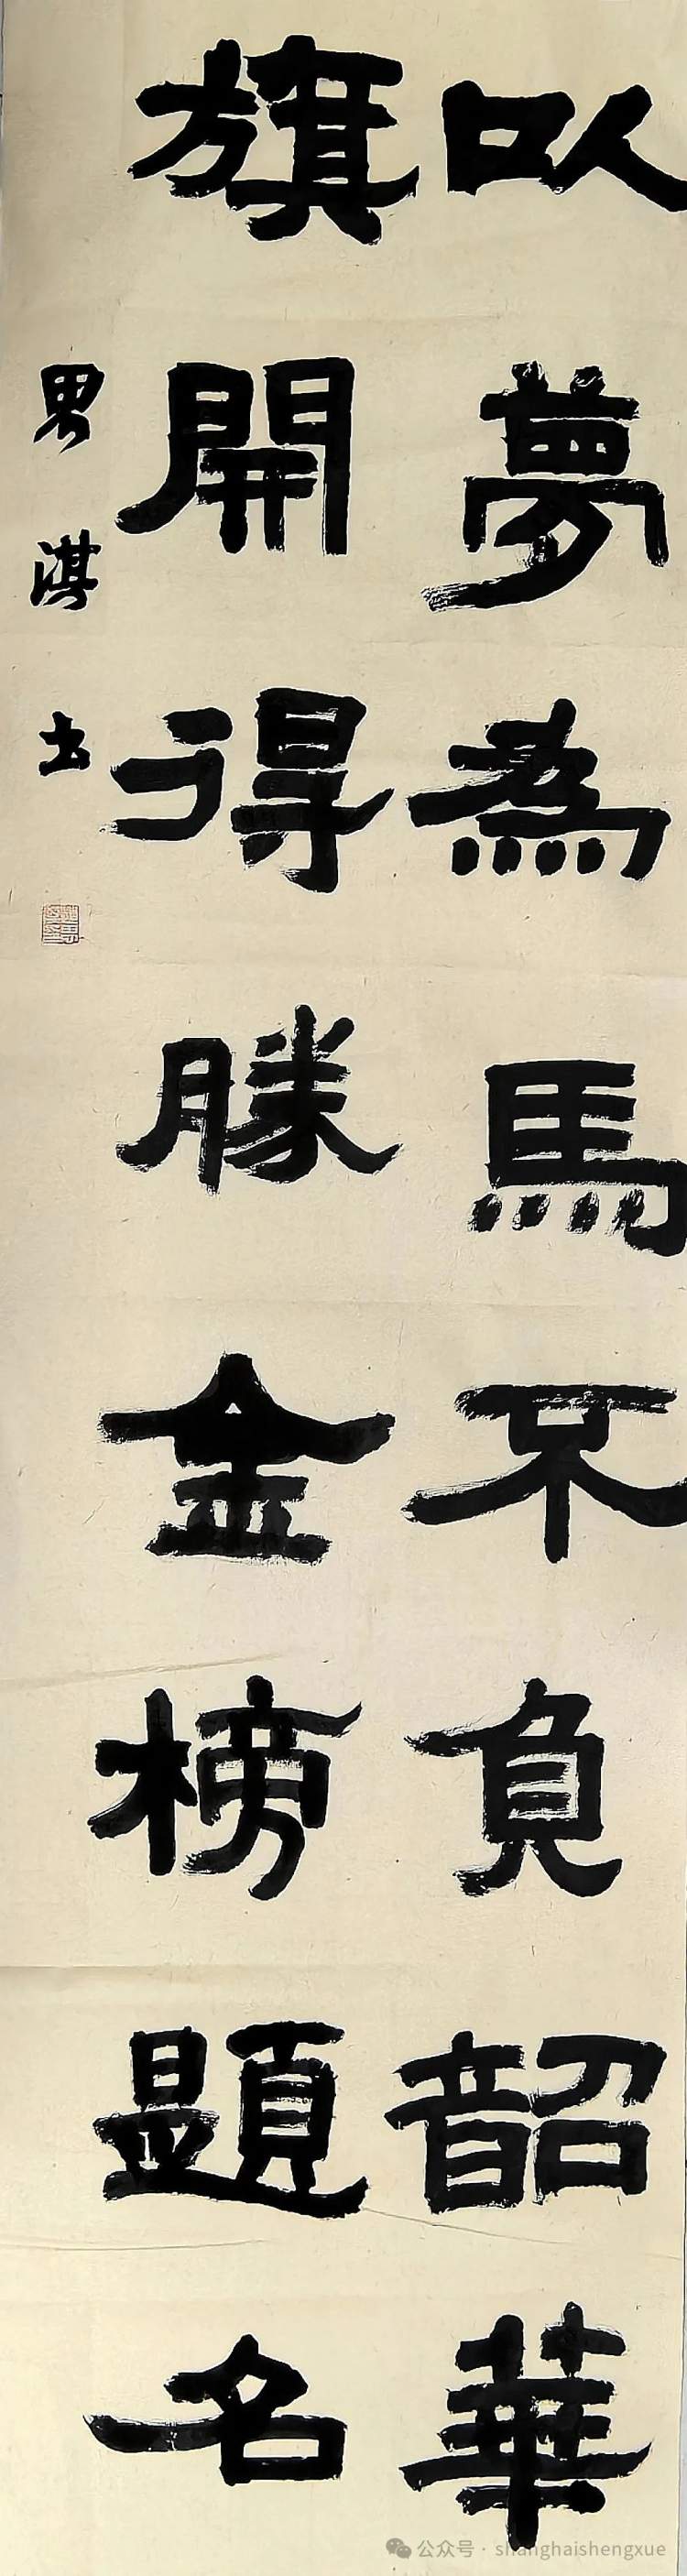 以夢為馬不負韶華
旗開得勝金榜題名
男淇書
公众号 · shanghaishengxue